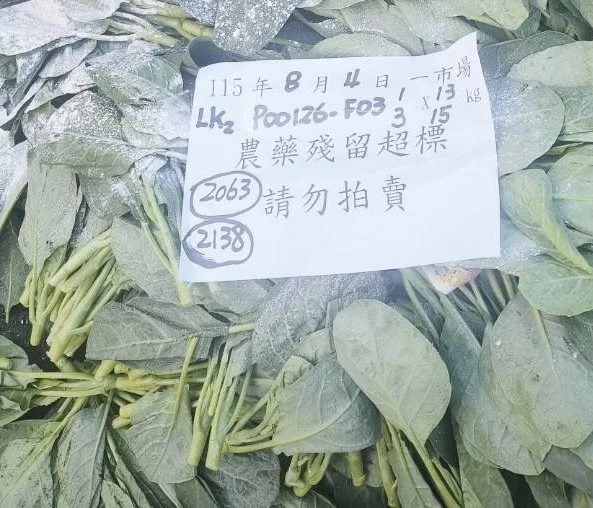 115年8月4日一市場
LK2 P00126-F03 1 x 13 kg
3 15
農藥殘留超標
2063 請勿拍賣
2138